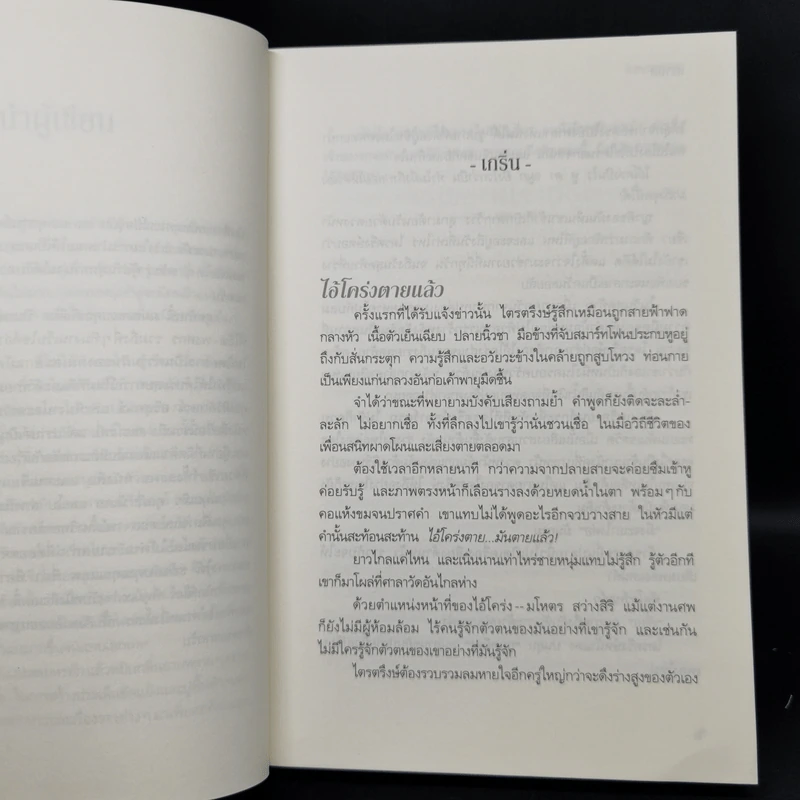 - เกริ่น -
ไอ้โคร่งตายแล้ว
ครั้งแรกที่ได้รับแจ้งข่าวนั้น ไตรตรึงษ์รู้สึกเหมือนถูกสายฟ้าฟาด
กลางหัว เนื้อตัวเย็นเฉียบ ปลายนิ้วชา มือข้างที่จับสมาร์ทโฟนประกบหูอยู่
ถึงกับสั่นกระตุก ความรู้สึกและอวัยวะข้างในคล้ายถูกสูบโหวง ท่อนกาย
เป็นเพียงแก่นกลวงอันก่อเค้าพายุมืดขึ้น
จำได้ว่าขณะที่พยายามบังคับเสียงถามย้ำ คำพูดก็ยังติดจะละล่ำ-
ละลัก ไม่อยากเชื่อ ทั้งที่ลึกลงไปเขารู้ว่านั่นชวนเชื่อ ในเมื่อวิถีชีวิตของ
เพื่อนสนิทผาดโผนและเสี่ยงตายตลอดมา
ต้องใช้เวลาอีกหลายนาที กว่าความจากปลายสายจะค่อยซึมเข้าหู
ค่อยรับรู้ และภาพตรงหน้าก็เลือนรางลงด้วยหยดน้ำในตา พร้อมๆ กับ
คอแห้งขมจนปราศคำ เขาแทบไม่ได้พูดอะไรอีกจวบวางสาย ในหัวมีแต่
คำนั้นสะท้อนสะท้าน ไอ้โคร่งตาย...มันตายแล้ว!
ยาวไกลแค่ไหน และเนิ่นนานเท่าไหร่ชายหนุ่มแทบไม่รู้สึก รู้ตัวอีกที
เขาก็มาโผล่ที่ศาลาวัดอันไกลห่าง
ด้วยตำแหน่งหน้าที่ของไอ้โคร่ง--มโหตร สว่างสิริ แม้แต่งานศพ
ก็ยังไม่มีผู้ห้อมล้อม ไร้คนรู้จักตัวตนของมันอย่างที่เขารู้จัก และเช่นกัน
ไม่มีใครรู้จักตัวตนของเขาอย่างที่มันรู้จัก
ไตรตรึงษ์ต้องรวบรวมลมหายใจอีกครู่ใหญ่กว่าจะดึงร่างสูงของตัวเอง